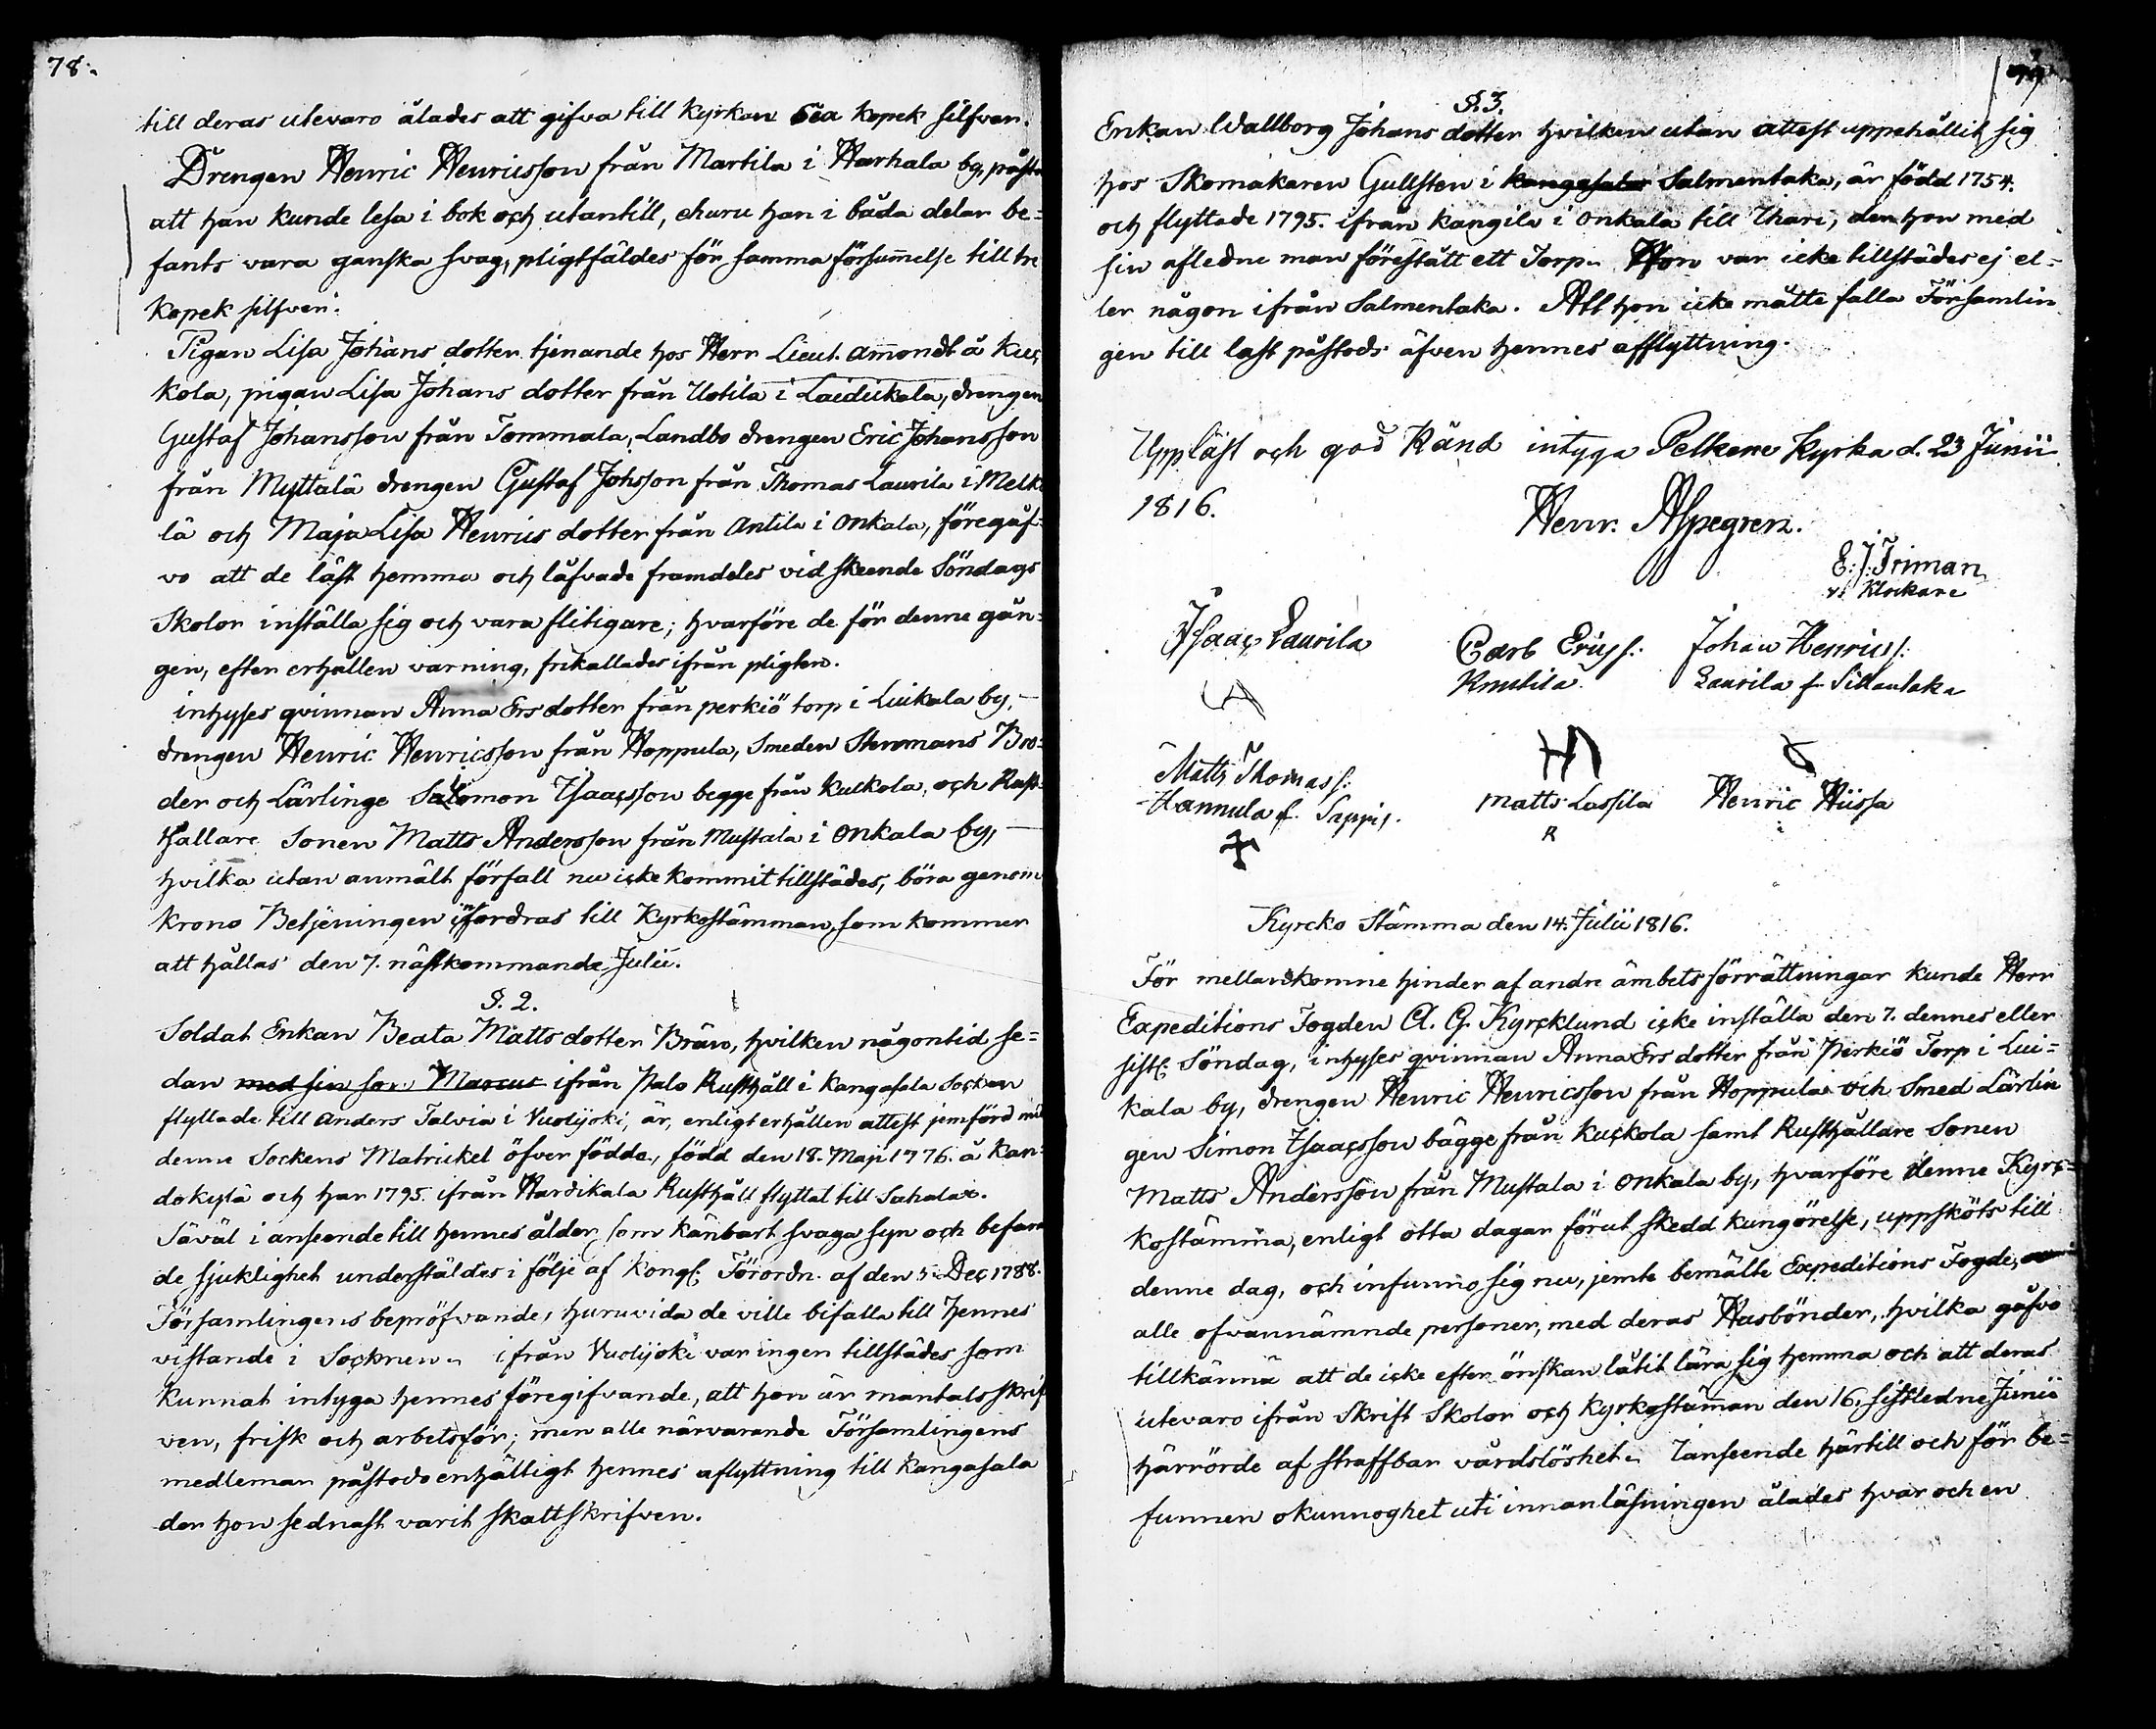 78.
till deras utevaro ålades att gifva till kyrkan kopek silfver.
Drengen Henric Henricsson från Martila i Harhala by, påsto
att han kunde lesa i bok och utantill, ehuru han i båda delar be=
fants vara ganska svag, pligtfäldes för samma försum̄else till tre
kopek silfver.
Pigan Lisa Johans dotter tjenande hos Herr Lieut. Am̄ondt å Kuc
kola, pigan Lisa Johans dotter från Uotila i Laidikala, drengen
Gustaf Johansson från Tommala, Landbo drengen Eric Johansson
från Myttälä drengen Gustaf Johsson från Thomas Laurila i Melk
lä och Maja Lisa Henrics dotter från Antila i Onkala, föregåf=
vo att de läst hemma och låfvade framdeles vid skeende Söndags
Skolor inställa sig och vara flitigare; hvarföre de för denne gån=
gen, efter erhållen varning, frikallades ifrån pligten.
inhyses qvinnan Anna Ers dotter från perkiö torp i Luikala by,
drengen Henric Henricsson från Hoppula, Smeden Stenmans Bro=
der och Lärlinge Salomon Isaacsson begge från Kuckola, och Rust=
hållare Sonen Matts Andersson från Mustala i Onkala by,
hvilka utan anmält förfall nu icke kommit tillstädes, böra genom
Krono Betjeningen infordras till Kyrkostämman, som kommer
att hållas den 7. nästkommande Julii.
§. 2.
Soldat Enkan Beata Matts dotter Brån, hvilken någontid se=
dan med sin son Marcus ifrån Palo Rusthåll i Kangasala Socken
flyttade till Anders Talvia i Vuolijoki, är, enligt erhållen attest jemförd med
denne Sockens Matrickel öfver födde, född den 18. Maji 1776. å Kan=
dokylä och har 1795. ifrån Hardikala Rusthåll flyttat till Sahalax.
Såväl i anseende till hennes ålder, som känbart svaga syn och befaran
de sjuklighet understäldes i följe af Kongl. Förordn. af den 5. Dec 1788.
Församlingens bepröfvande, huruvida de ville bifalla till hennes
vistande i Socknen. ifrån Vuolijoki var ingen tillstädes som
kunnat intyga hennes föregifvande, att hon är mantalsskrif
ven, frisk och arbetsför; men alle närvarande Församlingens
medlemar påstodo enhälligt hennes aflyttning till Kangasala
der hon sednast varit skattskrifven.
§. 3.
Enkan Wallborg Johans dotter hvilken utan attest uppehållit sig
hos Skomakaren Gullsten i Kangasala Salmentaka, är född 1754.
och flyttade 1795. ifrån Kangila i Onkala till Ihari, den hon med
sin afledne man förestått ett Torp. Hon var icke tillstädes ej el=
ler någon ifrån Salmentaka. Att hon icke måtte falla Församlin
gen till last påstods äfven hennes afflyttning.
Uppläst och god känd intyga Pelkene Kyrka d. 23 Junii
1816.
Henr. Alpegren.
E. J. Friman
v. Klockare
Isaac Laurila
Carl Erics.
Knutila
Johan Henrics.
Laurila f. Sillantaka
Matts Thomass.
Hannula f. Sappi
H
Matts Lassila
R
Henric Hiissa
Kyrcko Stämma den 14. Julii 1816.
För mellankomne hinder af andre ämbets förrättningar kunde Herr
Expeditions Fogden A. G. Kyrcklund icke inställa den 7. dennes eller
sistl. Söndag, inhyses qvinnan Anna Ers dotter från Perkiö Torp i Lui=
kala by, drengen Henric Henricsson från Hoppula och Smed Lärlin
gen Simon Isaacsson bägge från Kuckola samt Rusthållare Sonen
Matts Andersson från Mustala i Onkala by, hvarföre denne Kyrc=
kostämma, enligt otta dagar förut skedd kungörelse, uppsköts till
denne dag, och infunno sig nu, jemte bemälte Expeditions Fogde,
alle ofvannämnde personer, med deras Husbönder, hvilka gåfvo
tillkänna att de icke efter önskan låtit lära sig hemma och att deras
utevaro ifrån Skrift Skolor och Kyrkostäm̄an den 16. sistledne Junii
härrörde af straffbar vårdslöshet. I anseende härtill och för be=
funnen okunnoghet uti innanläsningen ålades hvar och en